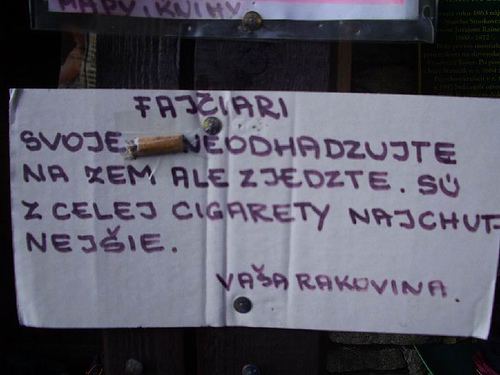 MAPY, KNIHY
FAJČIARI
SVOJE NEODHADZUJTE
NA ZEM ALE ZJEDZTE. SÚ
Z CELEJ CIGARETY NAJCHUT-
NEJŠIE.
VAŠA RAKOVINA.